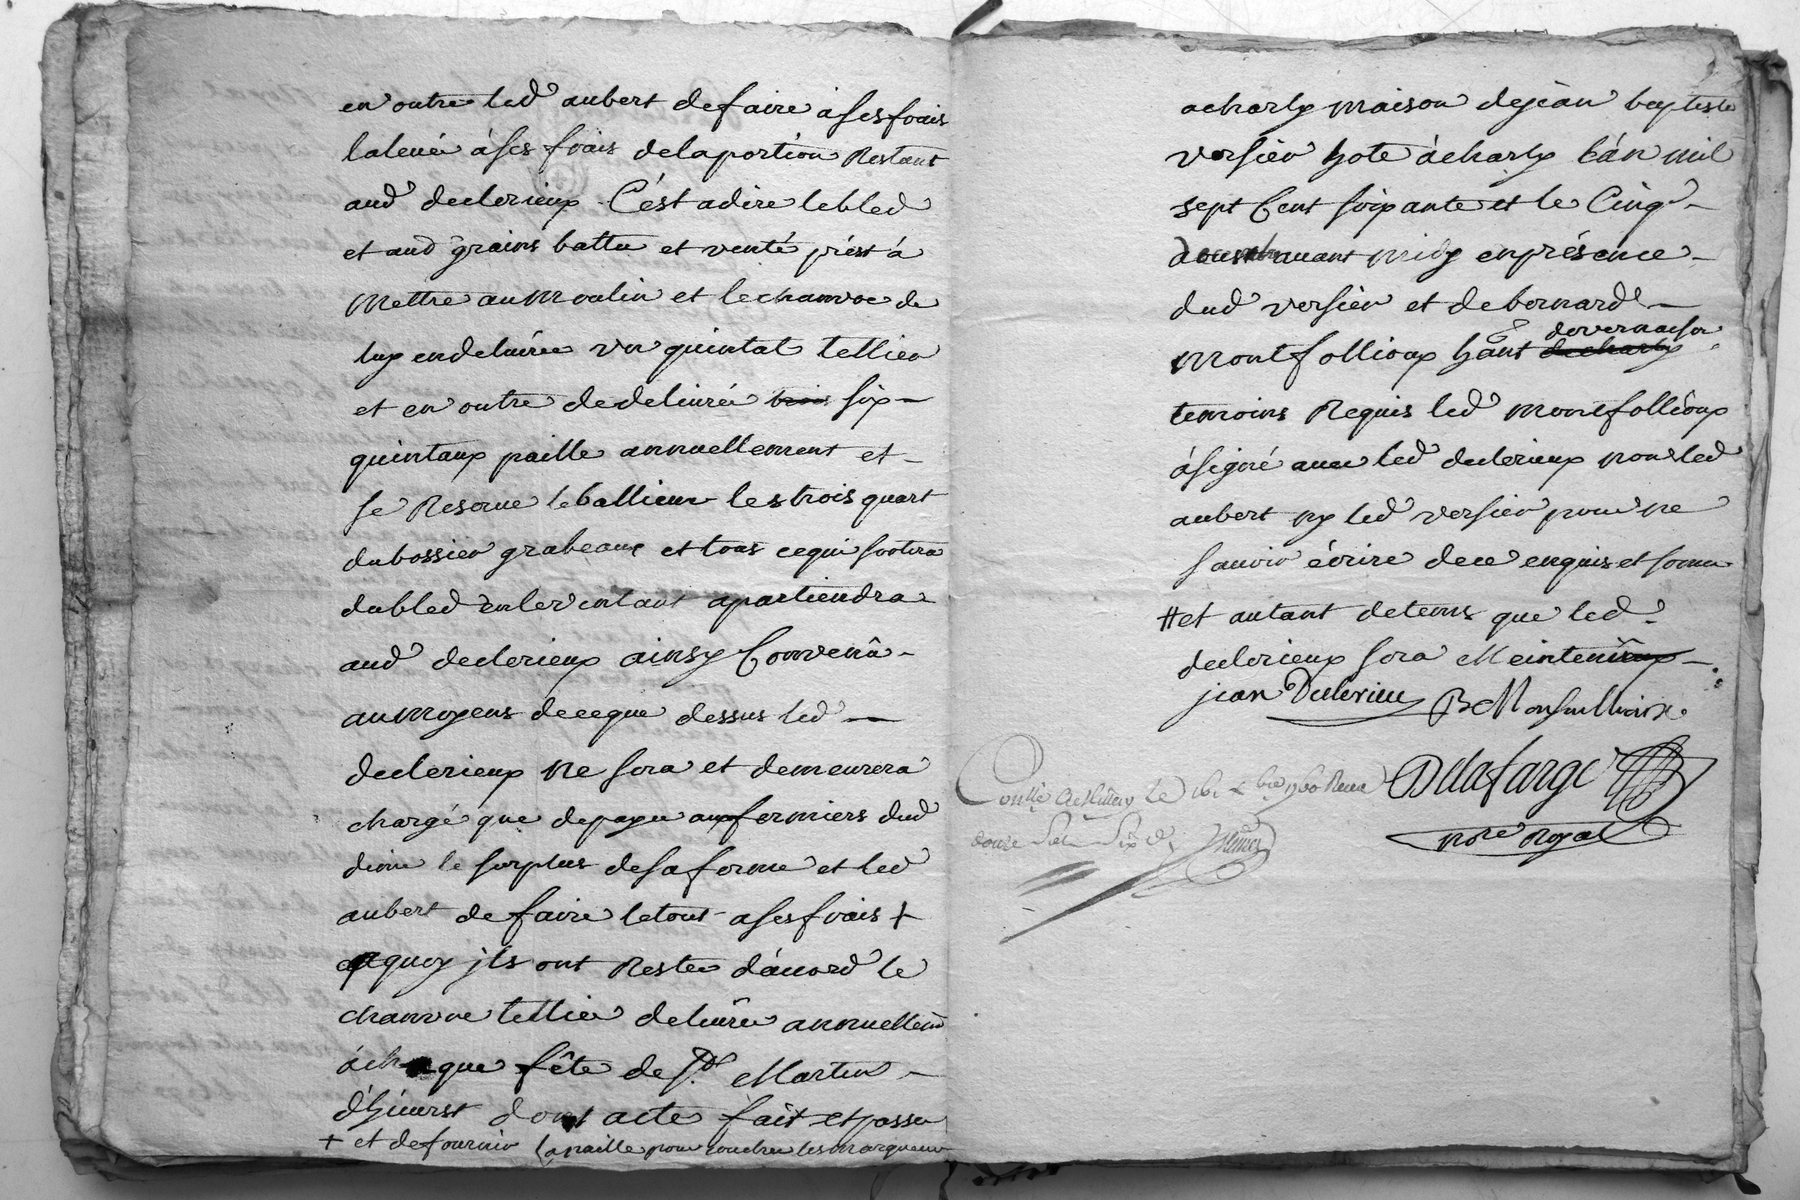 en outre led aubert de faire à ses frais
la levée à ses frais de la portion Restant
aud declerieux C'est adire le bled
et aud grains battu et venté prest à
Mettre au Moulin et le chanvre de
luy endelivrée un quintal tellier
et en outre de delivrée trois six
quintaux paille annuellement et
se Reserve le ballieur les trois quart
du bossier grabeaux et tous cequi sortira
du bled en le ventant apartiendra
aud declerieux ainsy Convenû
au moyens de ceque dessus led
declerieux Ne sera et demeurera
chargé que de payer aux fermiers dud
dime le surplus de sa ferme et led
aubert de faire le tout a ses frais +
a quoy jls ont Restes d'accord le
chanvre tellié delivrée annuellem
à chaque fête de St Martin
d'hiverst dont acte fait et passe
+ et de fournir la paille pour coucher les marqueur
a charly maison de jean baptiste
versier hote à charly l'an mil
sept Cent soixante et le Cinq
avant midy en présence
dud versier et de bernard
Montfollioux hânt de charly de vernaison
temoins Requis led Montfollioux
à signé avec led declerieux non led
aubert ny led versier pour ne
savoir écrire de ce enquis et somm
# et autant de tems que led
declerieux sera Meintenu
jean Declerieu B Monfoullioux
Conllé A Millery le 16 xbre 1760 Receu
douze sols six d
Delafarge
nore royal